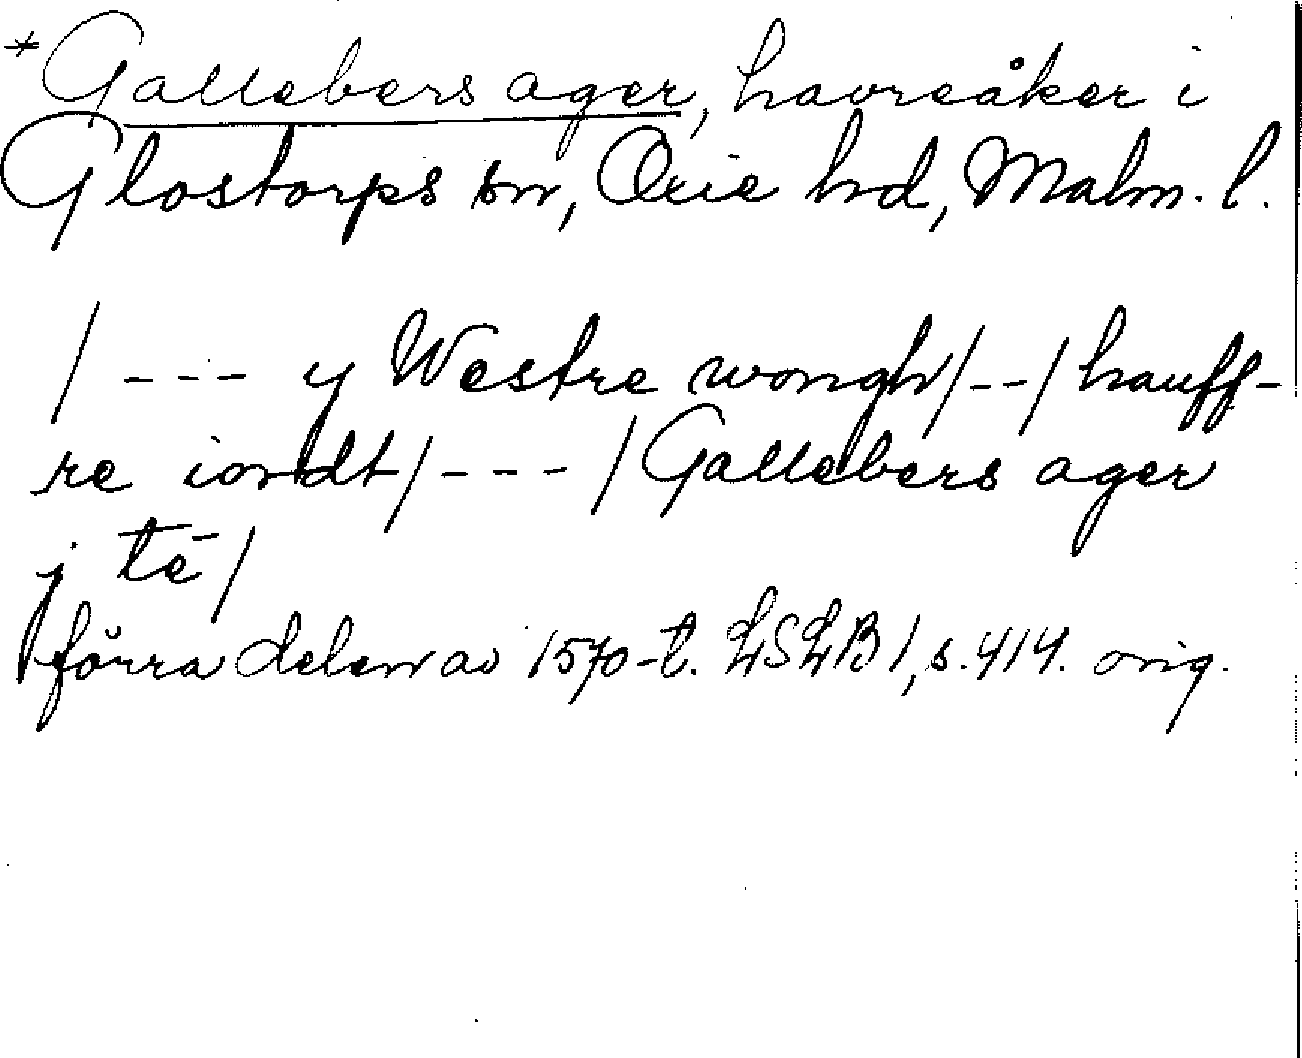 *Gallebers ager, havreåker i
Glostorps sn, Oxie hd, Malm. l.
/--- y Westre wongh/--/hauff-
re iordt/---/Gallebers ager
j tē/
förra delen av 1570-t. LSLB 1, s. 414. orig.